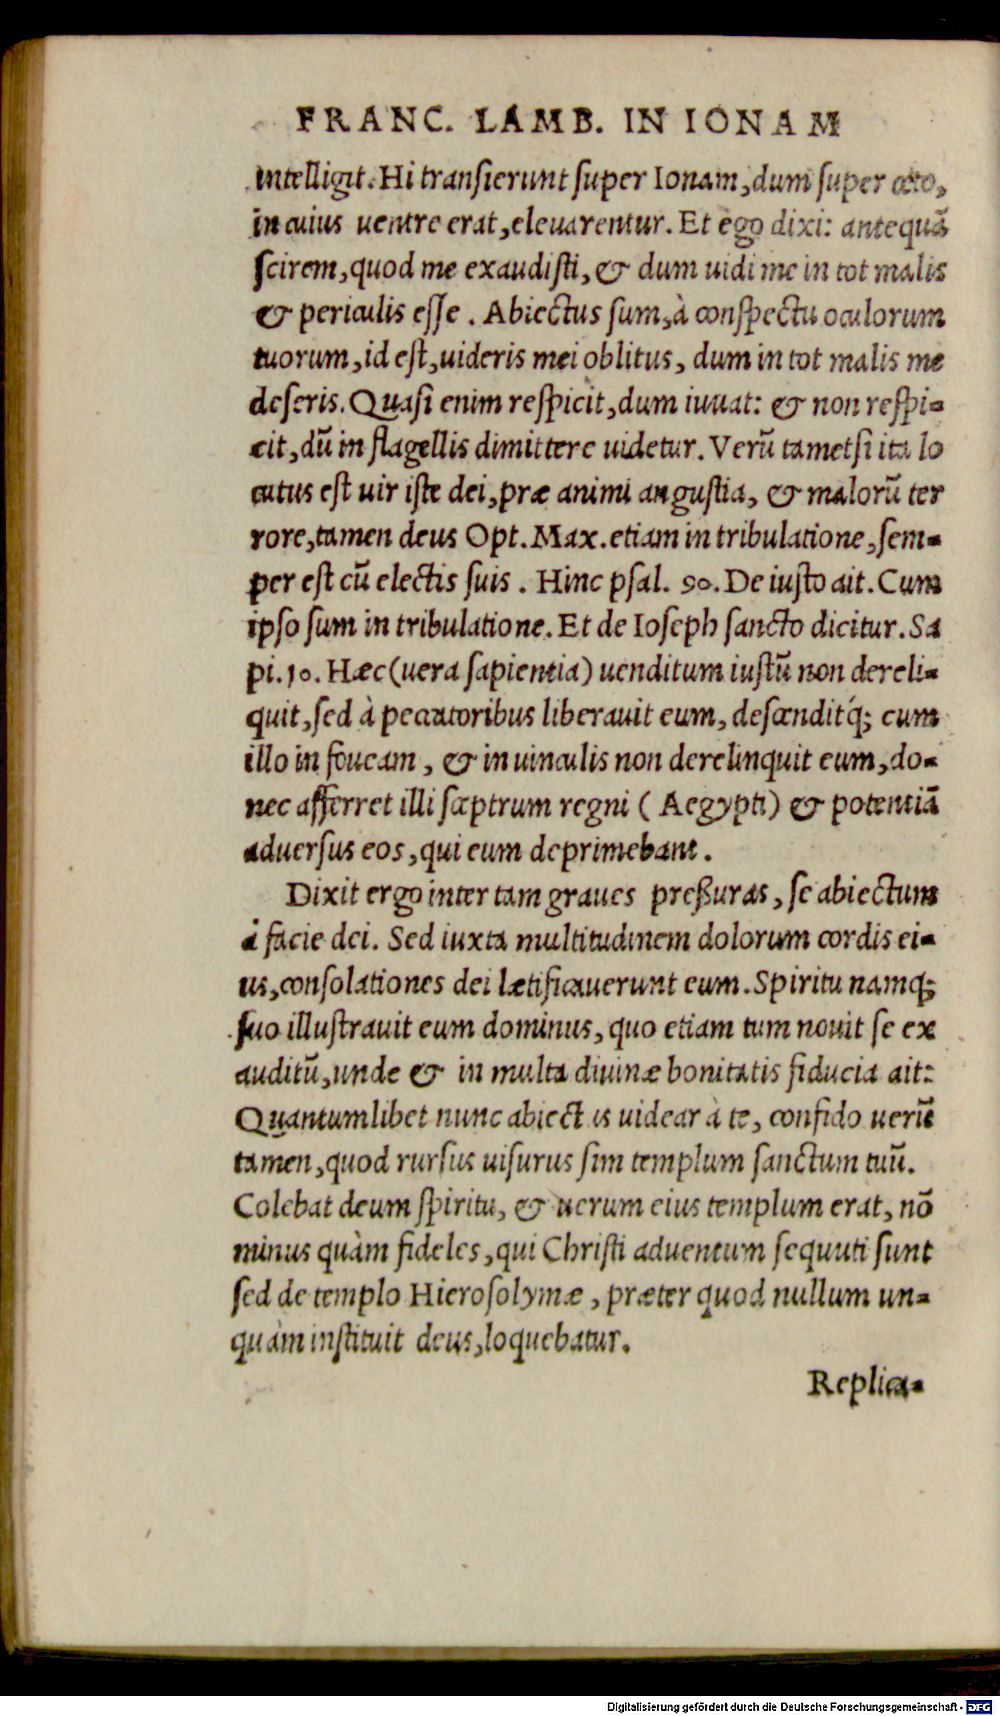 FRANC. LAMB. IN IONAM
intelligit. Hi transierunt super Ionam, dum super cęto,
in cuius uentre erat, eleuarentur. Et ego dixi: antequã
scirem, quod me exaudisti, & dum uidi me in tot malis
& periculis esse. Abiectus sum, à conspectu oculorum
tuorum, id est, uideris mei oblitus, dum in tot malis me
deseris. Quasi enim respicit, dum iuuat: & non respi-
cit, dũ in flagellis dimittere uidetur. Verũ tametsi ita lo
cutus est uir iste dei, præ animi angustia, & malorũ ter
rore, tamen deus Opt. Max. etiam in tribulatione, sem-
per est cũ electis suis. Hinc psal. 90. De iusto ait. Cum
ipso sum in tribulatione. Et de Ioseph sancto dicitur. Sa
pi. 10. Hæc (uera sapientia) uenditum iustũ non dereli-
quit, sed à peccatoribus liberauit eum, descenditq́; cum
illo in foueam, & in uinculis non derelinquit eum, do-
nec afferret illi sceptrum regni (Aegypti) & potentiã
aduersus eos, qui eum deprimebant.
Dixit ergo inter tam graues preßuras, se abiectum
à facie dei. Sed iuxta multitudinem dolorum cordis ei-
us, consolationes dei lætificauerunt eum. Spiritu namq;
suo illustrauit eum dominus, quo etiam tum nouit se ex
auditũ, unde & in multa diuinæ bonitatis fiducia ait:
Quantumlibet nunc abiect us uidear à te, confido uerũ
tamen, quod rursus uisurus sim templum sanctum tuũ.
Colebat deum spiritu, & uerum eius templum erat, nõ
minus quàm fideles, qui Christi aduentum sequuti sunt
sed de templo Hierosolymæ, præter quod nullum un-
quàm instituit deus, loquebatur.
Replica-
Digitalisierung gefördert durch die Deutsche Forschungsgemeinschaft - DFG